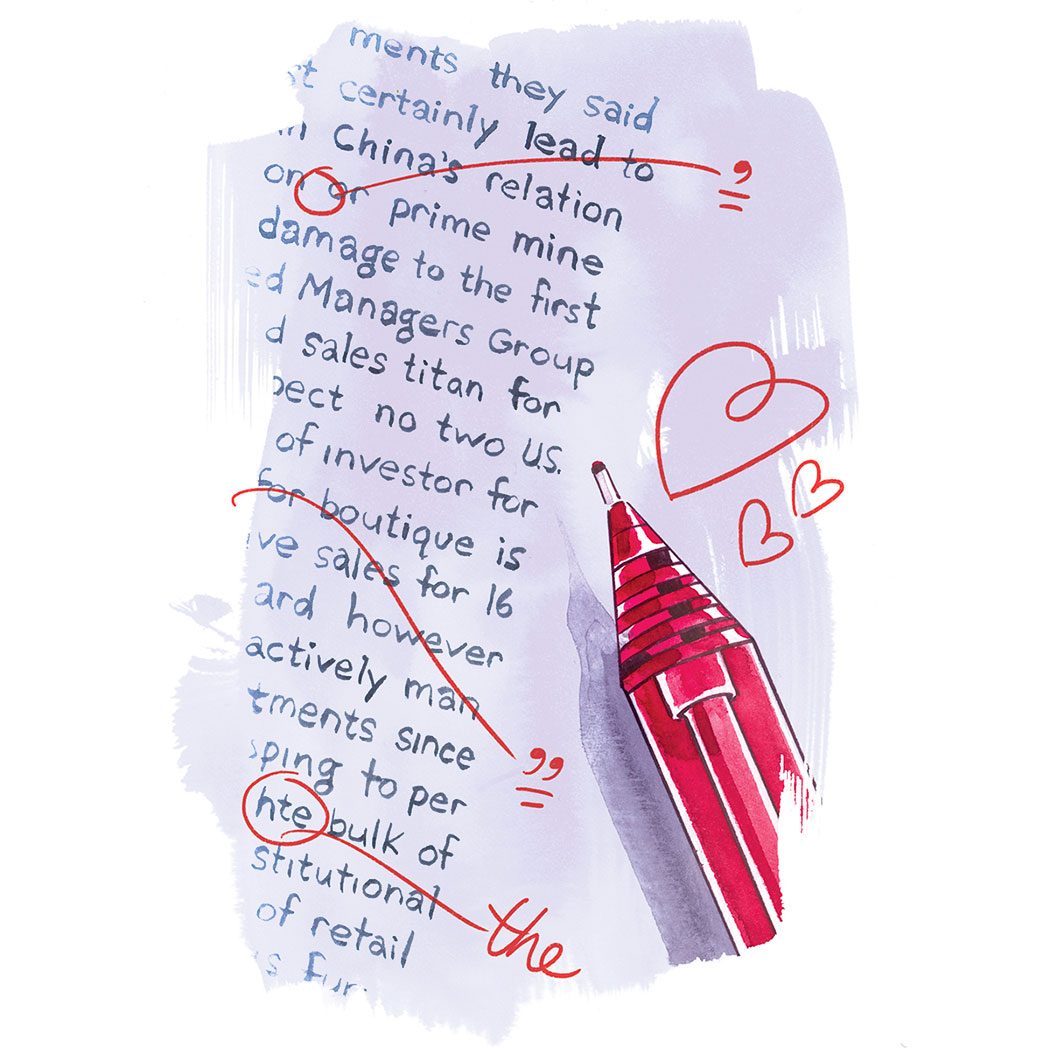 ments they said
certainly lead to
in China's relation
,
on or prime mine
damage to the first
ed Managers Group
d sales titan for
pect no two U.S.
of investor for
for boutique is
ve sales for 16
ard however
actively man
tments since
”
ping to per
hte bulk of
stitutional
the
of retail